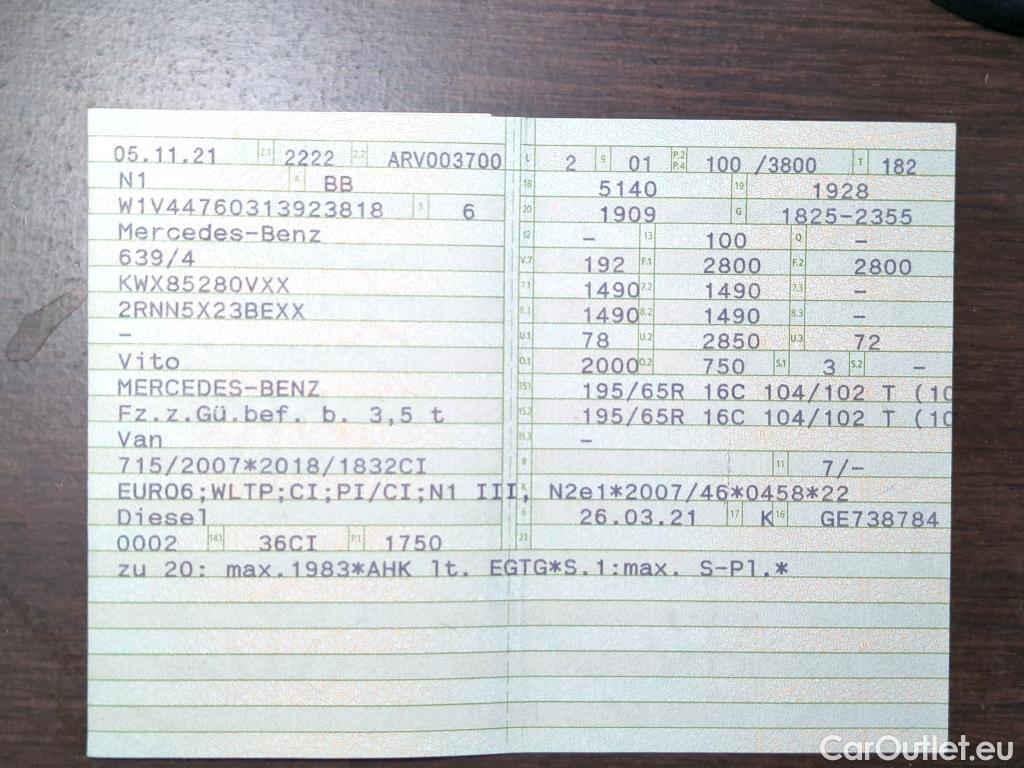 05.11.21 2.1 2222 2.2 ARV003700 L 2 9 01 P.2 P.4 100 /3800 T 182
N1 4 BB 18 5140 19 1928
W1V44760313923818 3 6 20 1909 G 1825-2355
Mercedes-Benz 12 – 13 100 Q –
639/4 V.7 192 F.1 2800 F.2 2800
KWX85280VXX 7.1 1490 7.2 1490 7.3 –
2RNN5X23BEXX 8.1 1490 8.2 1490 8.3 –
– U.1 78 U.2 2850 U.3 72
Vito O.1 2000 O.2 750 S.1 3 S.2 –
MERCEDES-BENZ 15.1 195/65R 16C 104/102 T (10
Fz.z.Gü.bef. b. 3,5 t 15.2 195/65R 16C 104/102 T (10
Van 15.3 –
715/2007*2018/1832CI R 11 7/–
EURO6;WLTP;CI;PI/CI;N1 III, N2 K e1*2007/46*0458*22
Diesel 6 26.03.21 17 K 16 GE738784
0002 14.1 36CI P.1 1750 21
zu 20: max.1983*AHK lt. EGTG*S.1:max. S-Pl.*
CarOutlet.eu